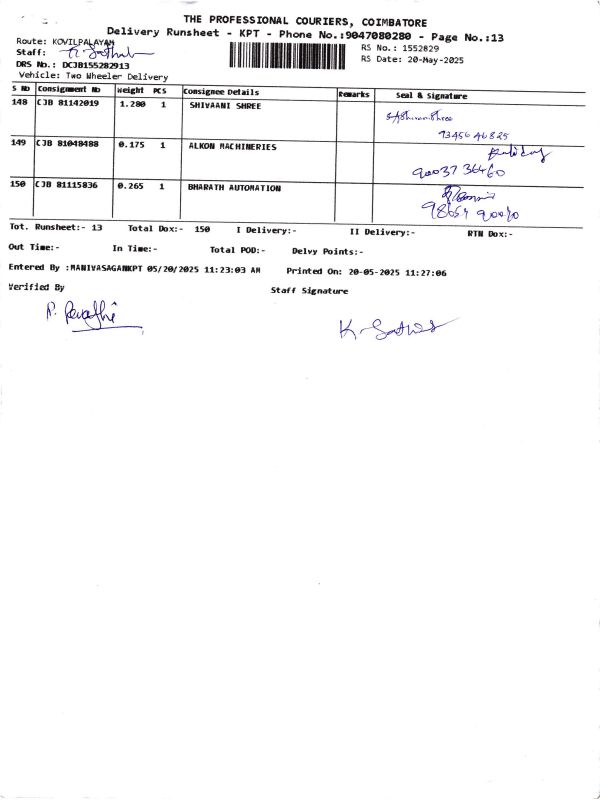 THE PROFESSIONAL COURIERS, COIMBATORE
Delivery Runsheet - KPT - Phone No.:9047080280 - Page No.:13
Route: KOVILPALAYAM
RS No.: 1552829
Staff:
RS Date: 20-May-2025
DRS No.: DCJB155282913
Vehicle: Two Wheeler Delivery
S No Consignment No Weight PCS Consignee Details Remarks Seal & Signature
148 CJB 81142019 1.280 1 SHIVAANI SHREE
93456 46825
149 CJB 81048488 0.175 1 ALKON MACHINERIES
90037 36460
150 CJB 81115836 0.265 1 BHARATH AUTOMATION
Tot. Runsheet:- 13 Total Dox:- 150 I Delivery:- II Delivery:- RTN Dox:-
Out Time:- In Time:- Total POD:- Delvy Points:-
Entered By :MANIVASAGANKPT 05/20/2025 11:23:03 AM Printed On: 20-05-2025 11:27:06
Verified By
Staff Signature
P. Revathi